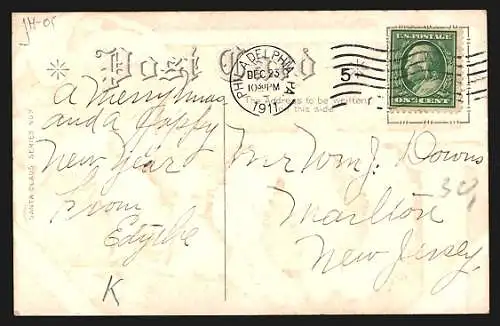 JH-05
Post Card
PHILADELPHIA, PA
DEC 23
10 30 PM
1911
5
U.S. POSTAGE
ONE CENT
The Address to be written
this side.
SANTA CLAUS SERIES NO
A Merry Xmas
and a Happy
New Year
From
Edythe
K
Mr Wm J. Downs
Marlton
New Jersey.
30